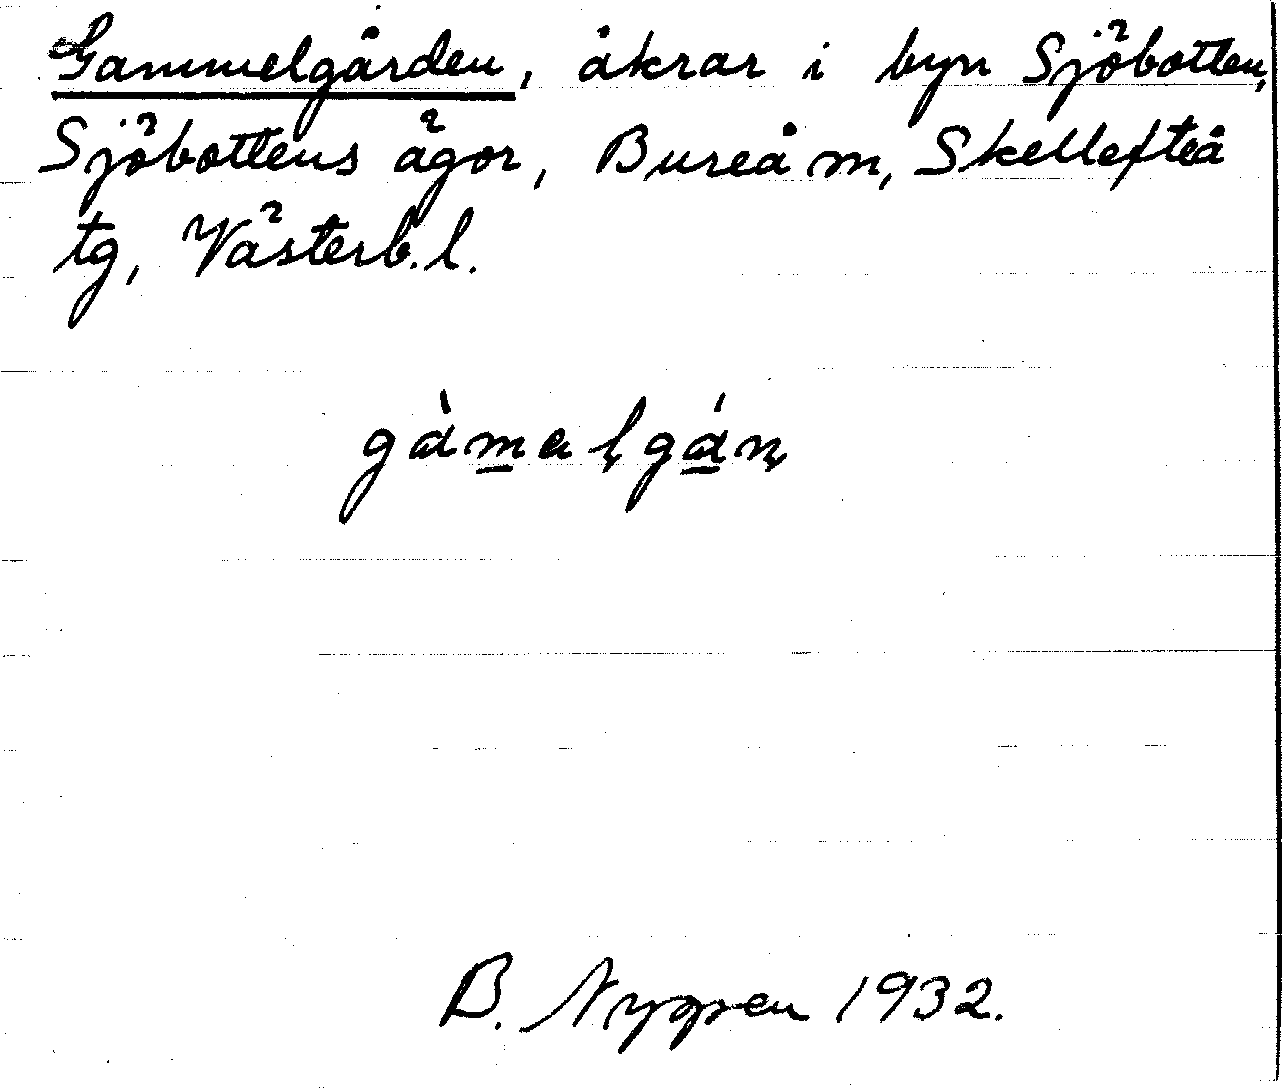 Gammelgården, åkrar i byn Sjöbotten,
Sjöbottens ägor, Bureå m, Skellefteå
tg, Västerb. l.
gàmalgán
B. Nygren 1932.